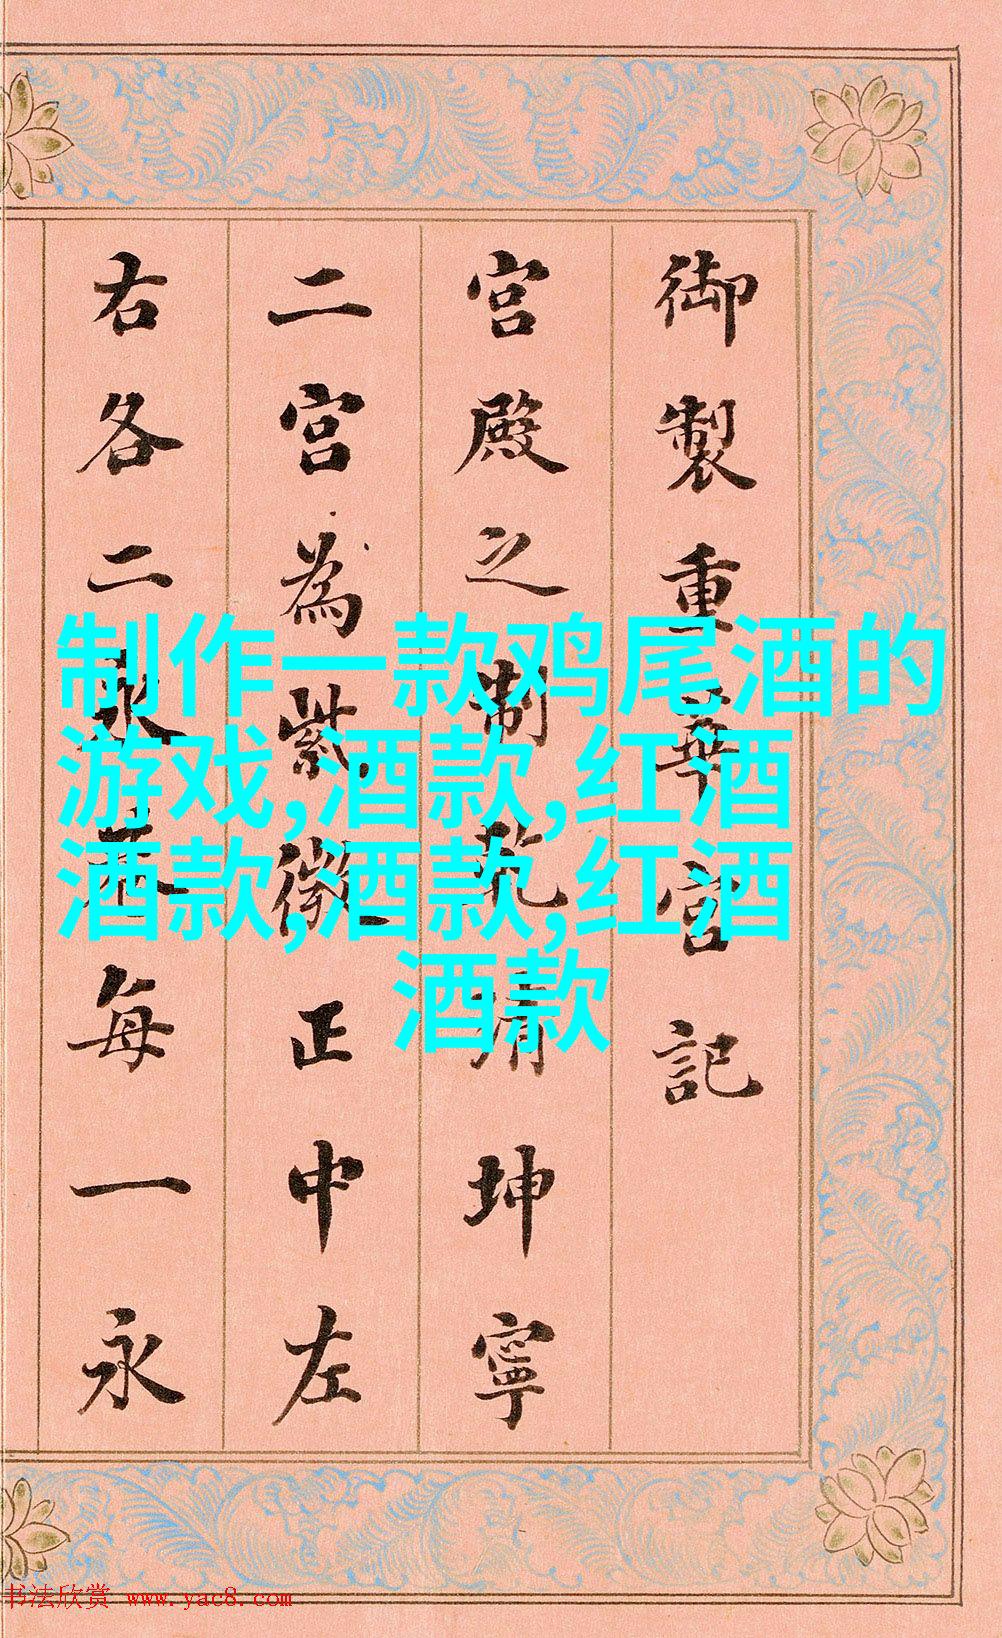 御製重華宮記
宮殿之制乾清坤寧
二宮為紫微正中左
右各二永巷每一永
制作一款鸡尾酒的
游戏,酒款,红酒
酒款,酒款,红酒
酒款
书法欣赏 www.yac8.com